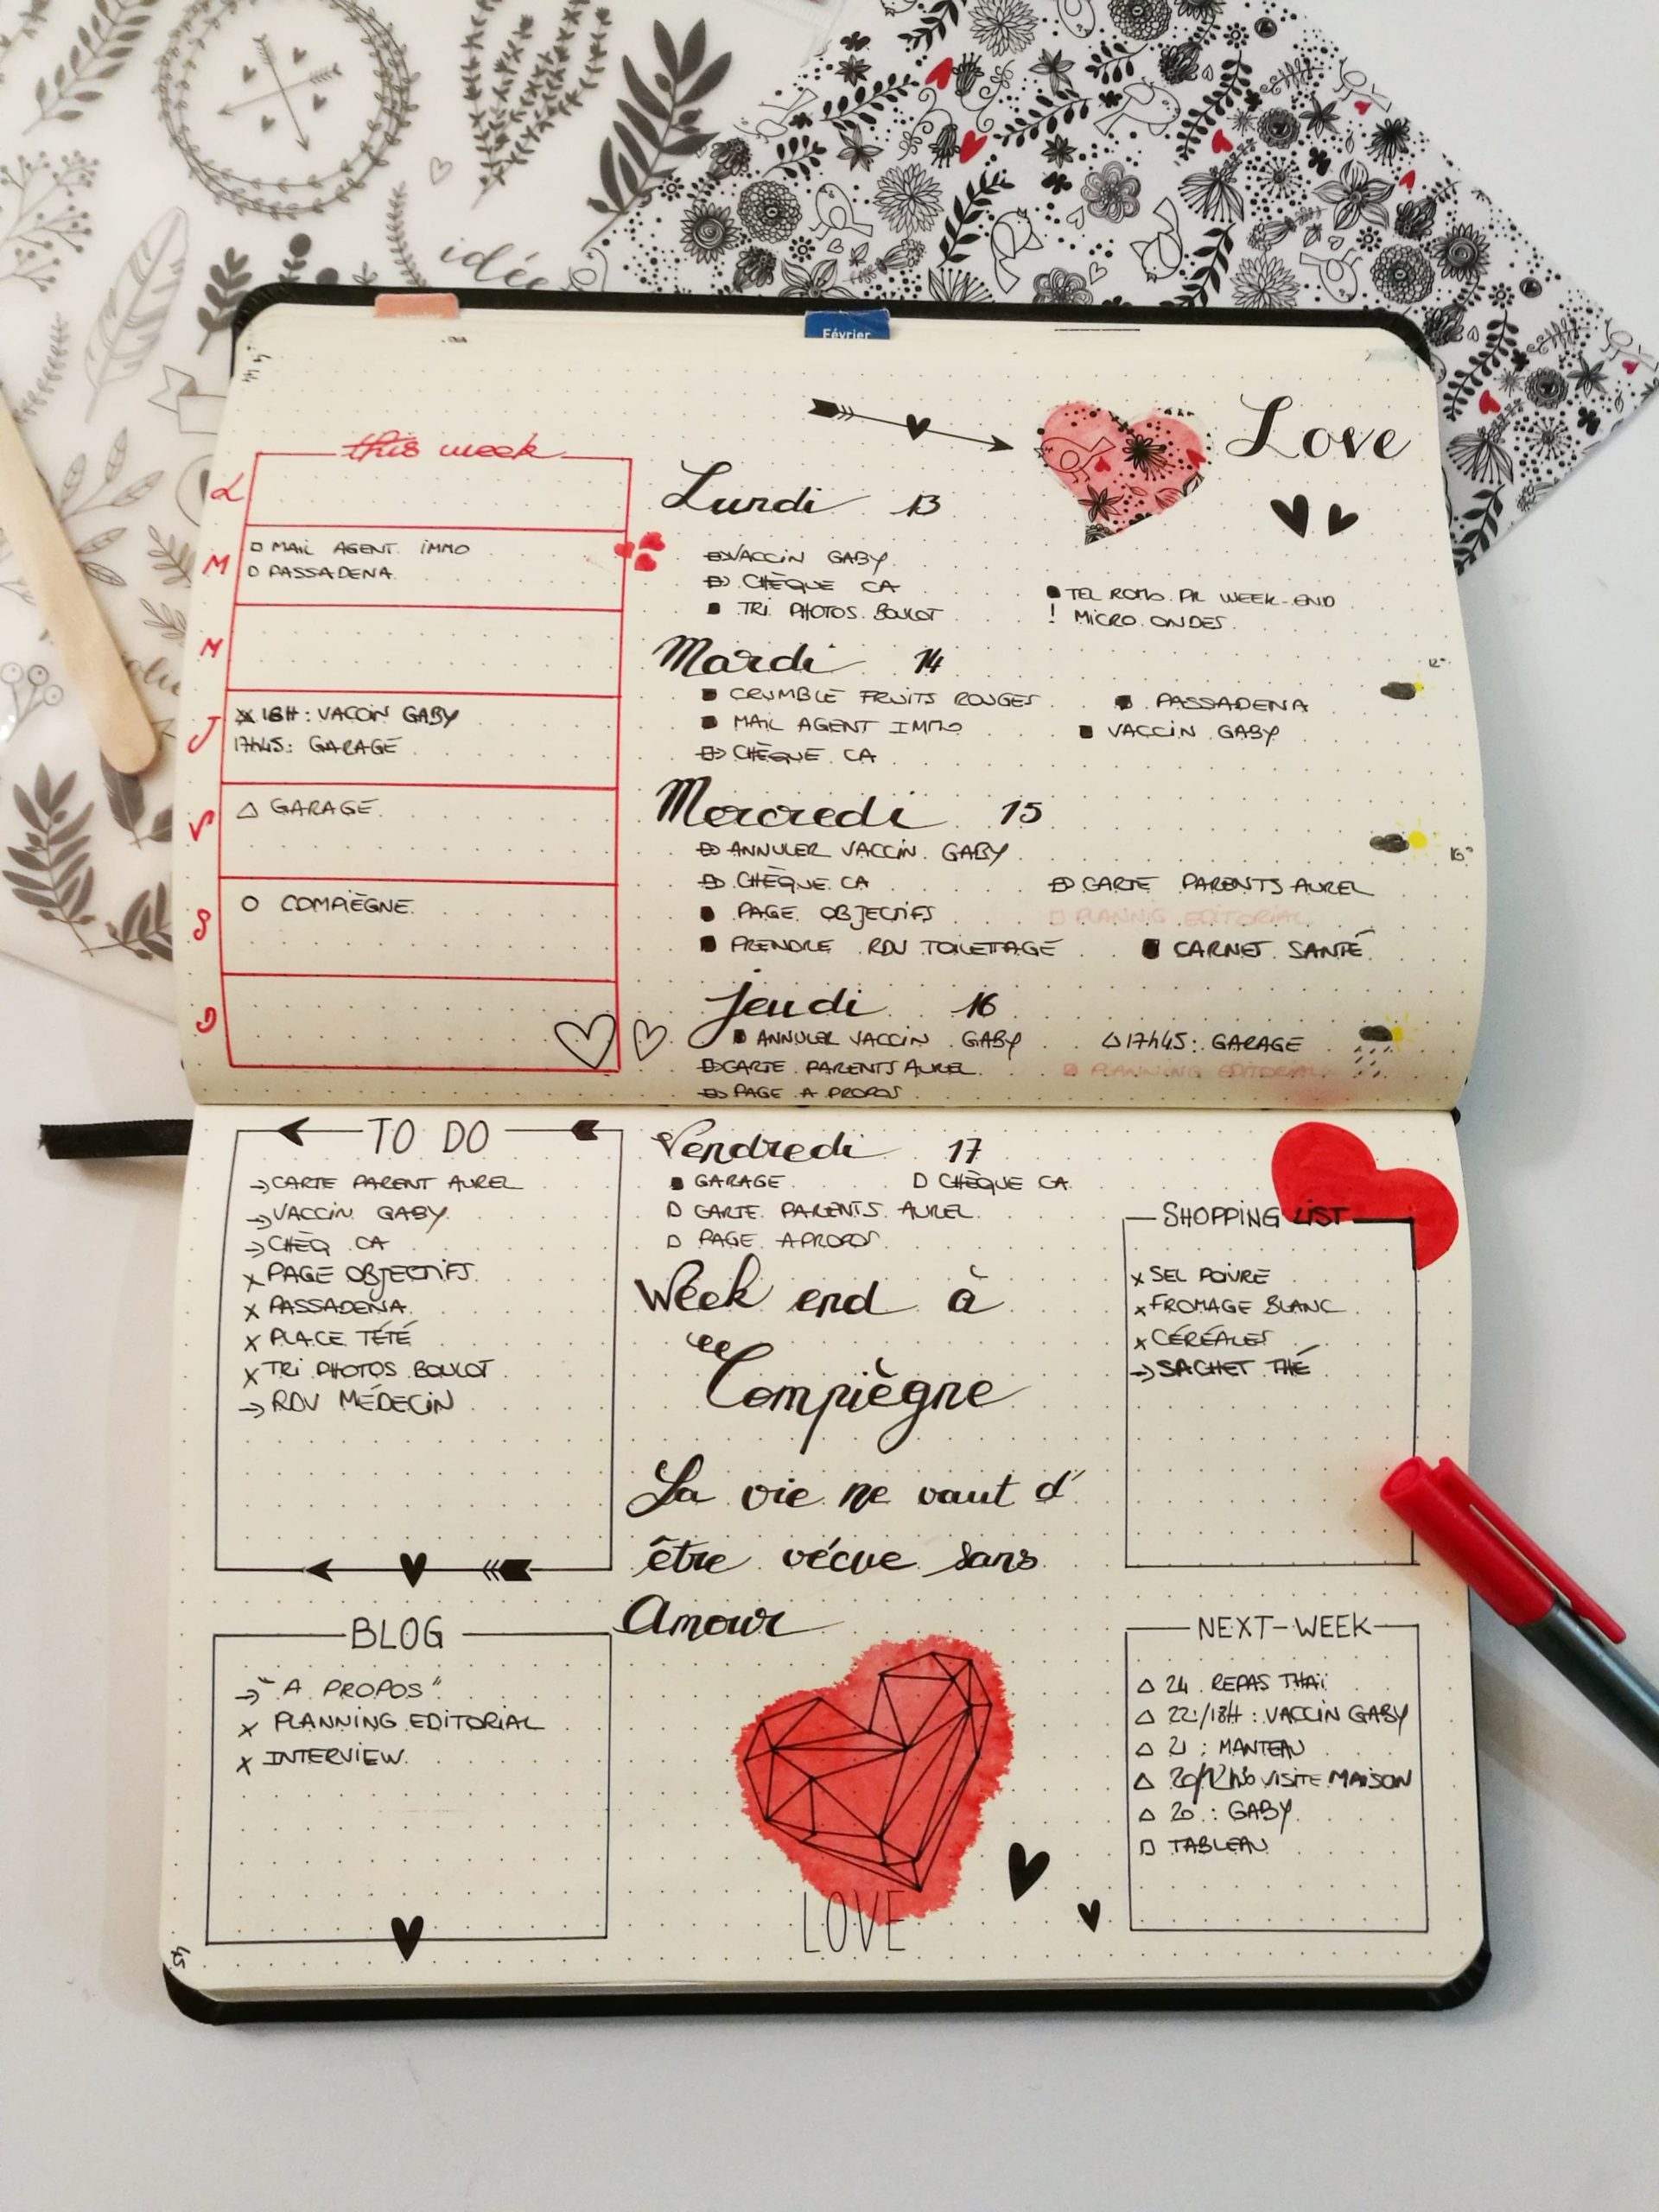 idée
Février
this week
L
M
□ MAIL AGENT IMMO
□ PASSADENA
M
J
18H : VACCIN GABY
17H45 : GARAGE
V
△ GARAGE
S
O COMPIÈGNE
D
Love
Lundi 13
VACCIN GABY
CHÈQUE CA
■ TRI PHOTOS BOULOT
TEL ROMO PR WEEK-END
! MICRO ONDES
Mardi 14
12°
■ CRUMBLE FRUITS ROUGES
■ PASSADENA
■ MAIL AGENT IMMO
■ VACCIN GABY
CHÈQUE CA
Mercredi 15
16°
ANNULER VACCIN GABY
CHÈQUE CA
CARTE PARENTS AUREL
■ PAGE OBJECTIFS
□ PLANNIG EDITORIAL
■ PRENDRE RDV TOILETTAGE
■ CARNET SANTÉ
Jeudi 16
■ ANNULER VACCIN GABY
△ 17h45 : GARAGE
CARTE PARENTS AUREL
PLANNING EDITORIAL
PAGE A PROPOS
TO DO
→ CARTE PARENT AUREL
→ VACCIN GABY
→ CHÈQ CA
x PAGE OBJECTIFS
x PASSADENA
x PLACE TÉTÉ
x TRI PHOTOS BOULOT
→ RDV MÉDECIN
Vendredi 17
■ GARAGE
□ CHÈQUE CA
□ CARTE PARENTS AUREL
□ PAGE A PROPOS
Week end à
Compiègne
La vie ne vaut d'
être vécue sans
Amour
LOVE
SHOPPING LIST
x SEL POIVRE
x FROMAGE BLANC
x CÉRÉALES
→ SACHET THÉ
BLOG
→ "A PROPOS"
x PLANNING EDITORIAL
x INTERVIEW
NEXT-WEEK
△ 24 REPAS THAÏ
△ 22/18H : VACCIN GABY
△ 21 : MANTEAU
△ 20/ VISITE MAISON
△ 20 : GABY
□ TABLEAU
45